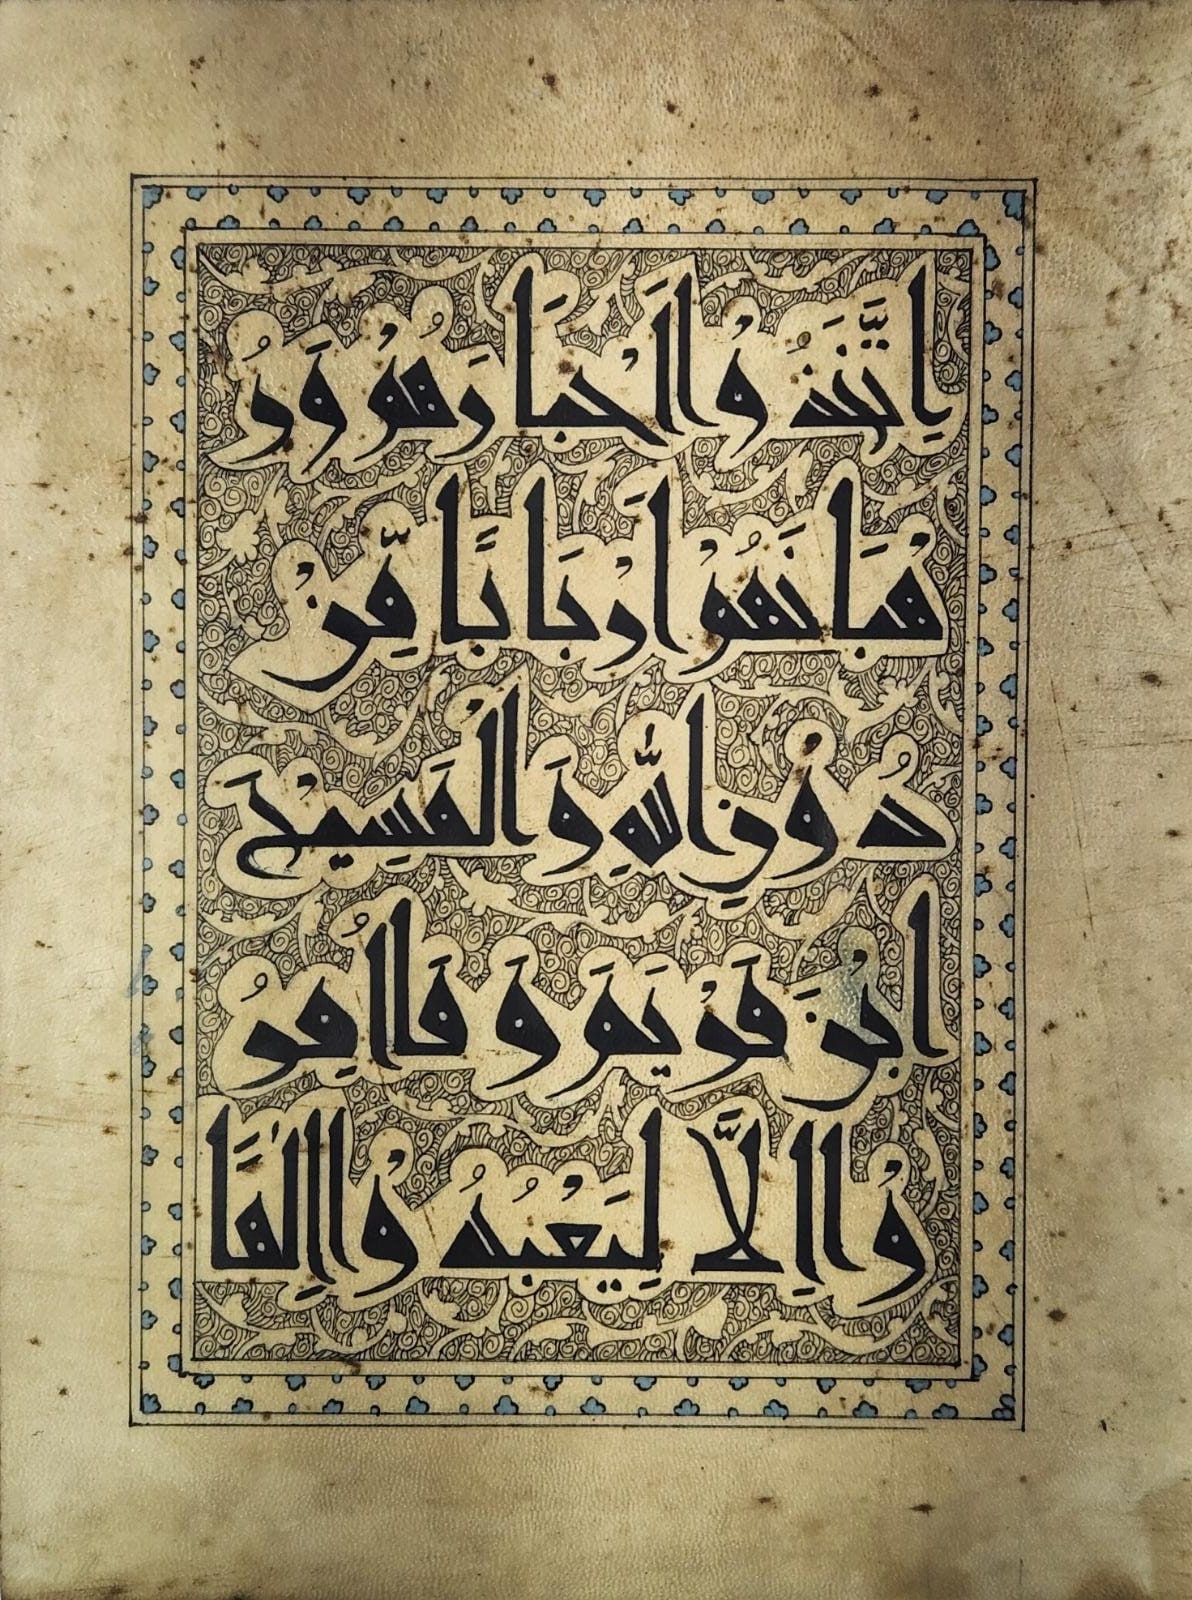 اِتَّخَذُوْا اَحْبَارَهُمْ وَرُ
هْبَانَهُمْ اَرْبَابًا مِّنْ
دُوْنِ اللّٰهِ وَالْمَسِيْحَ
ابْنَ مَرْيَمَ وَمَا اُمِرُ
وْا اِلَّا لِيَعْبُدُوْا اِلٰهًا